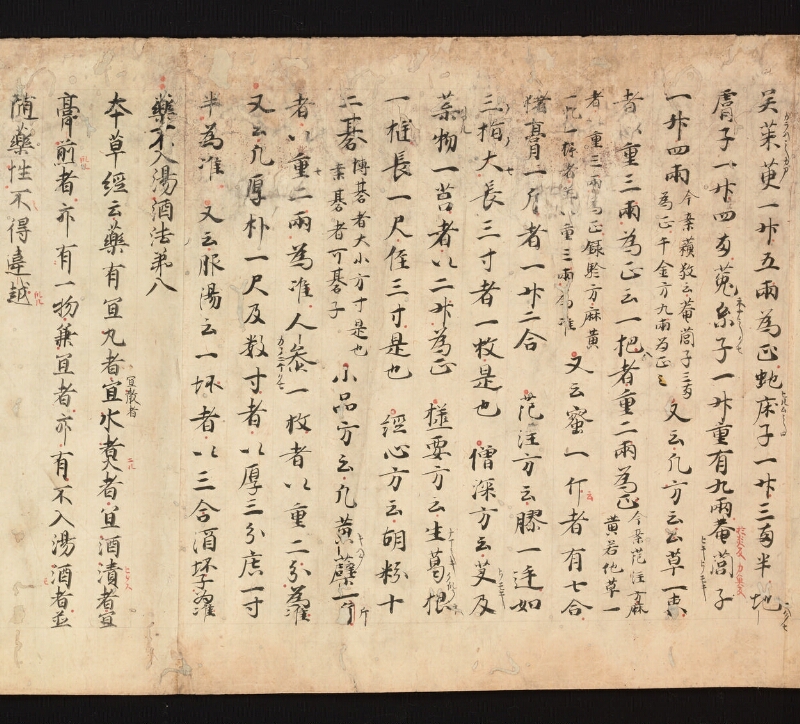 吴茱萸一升五兩為正虵床子一升三兩半地
膚子一升四兩菟絲子一升重有九兩菴䕡子
一升四兩今案蘓敬云菴䕡子三兩為正千金方九兩為正又云凡方云草一束
者以重三兩為正云一把者重二兩為正今案范汪方麻黄若他草一
者以重三兩為正錄驗方麻黄一把一握者以重三兩為准又云蜜一斤者有七合
猪膏一斤者一升二合 范汪方云膠一廷如
三指大長三寸者一枚是也 僧深方云艾及
菜物一莒者以二升為正 様要方云生葛根
一挺長一尺侄三寸是也 經心方云胡粉十
二碁博碁者大小方寸是也棗碁者可碁子 小品方云凡黄蘗一斤
者以重二兩為准人参一枚者以重二分為准
又云凡厚朴一尺及数寸者以厚三分廣一寸
半為准 又云服湯云一坏者以三合酒坏子准
藥不入湯酒法第八
本草經云藥有宜丸者宜散者宜水煮者宜酒漬者宜
膏煎者亦有一物兼宜者亦有不入湯酒者並
随藥性不得違越